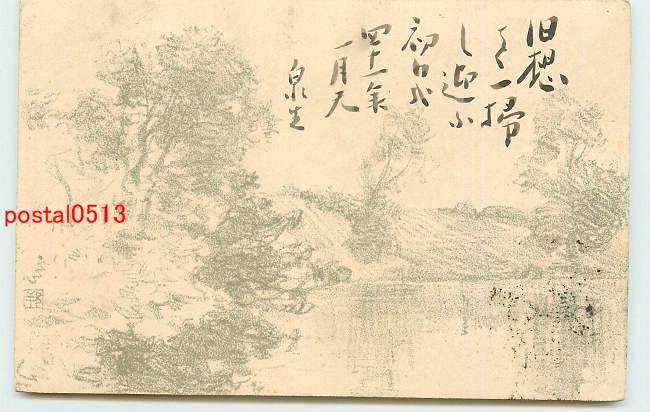 旧想
を一掃
し迎ふ
初日哉
四十一年
一月元
泉生
postal0513